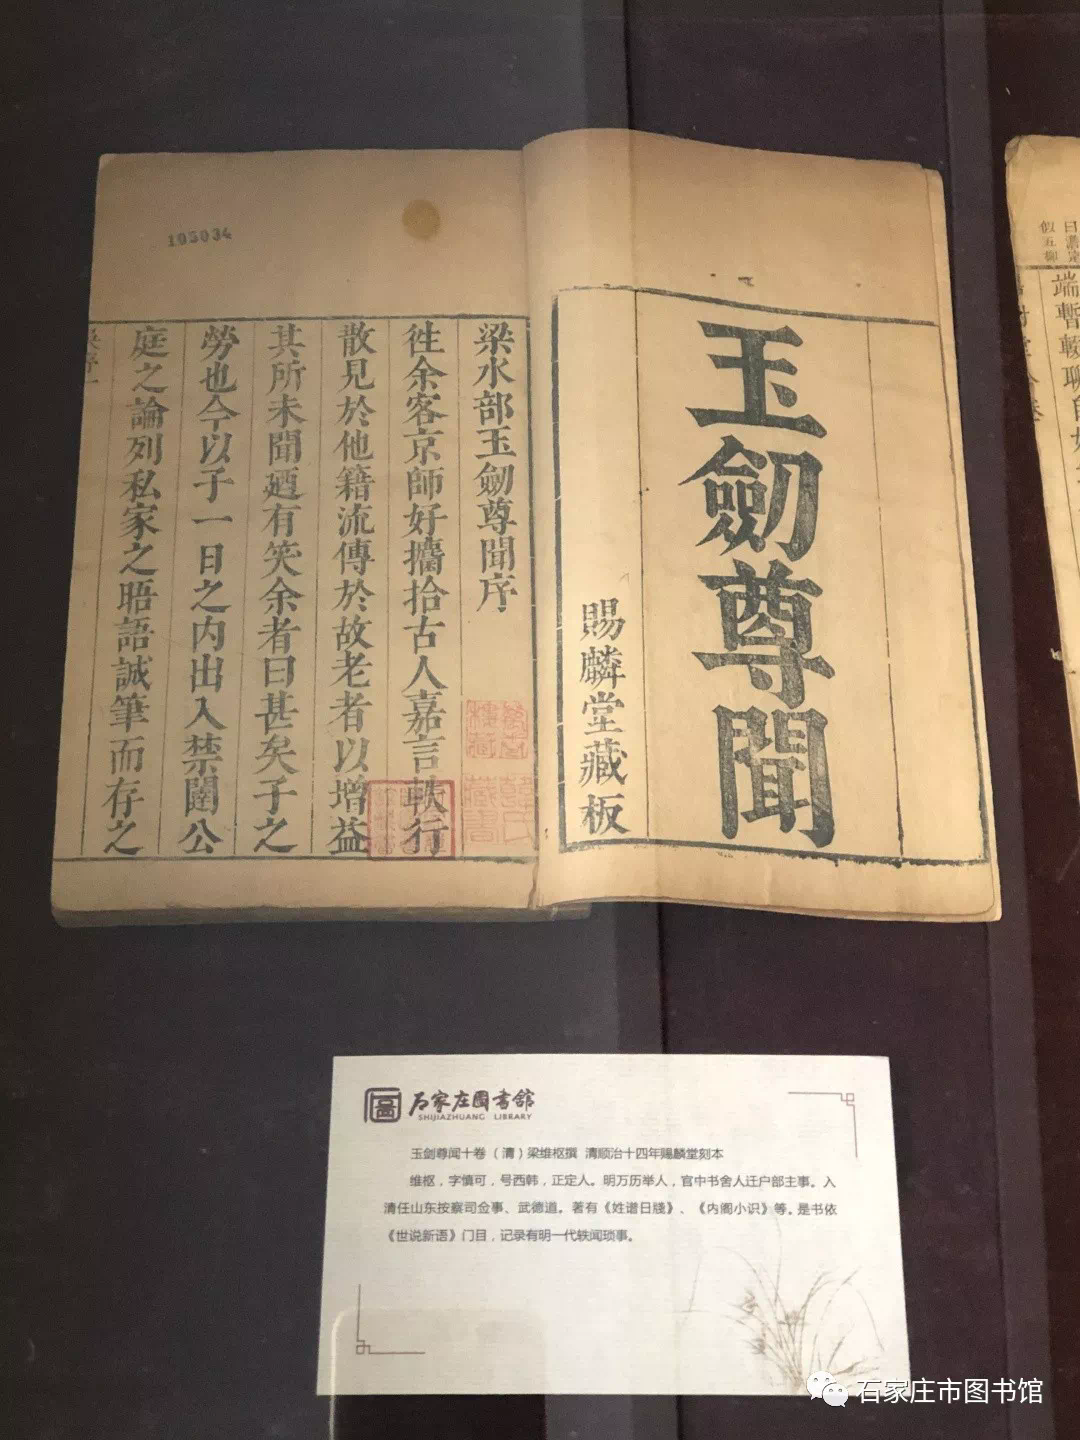 玉劒尊聞
賜麟堂藏板
梁水部玉劒尊聞序
徃余客京師好攟拾古人嘉言軼行
散見於他籍流傳於故老者以增益
其所未聞廼有笑余者曰甚矣子之
勞也今以子一日之内出入禁闥公
庭之論列私家之晤語誠筆而存之
105034
端暫輟聊
石家庄图書館
SHIJIAZHUANG LIBRARY
玉剑尊闻十卷（清）梁维枢撰 清顺治十四年赐麟堂刻本
维枢，字慎可，号西韩，正定人。明万历举人，官中书舍人迁户部主事。入
清任山东按察司佥事、武德道。著有《姓谱日牋》、《内阁小识》等。是书依
《世说新语》门目，记录有明一代轶闻琐事。
石家庄市图书馆